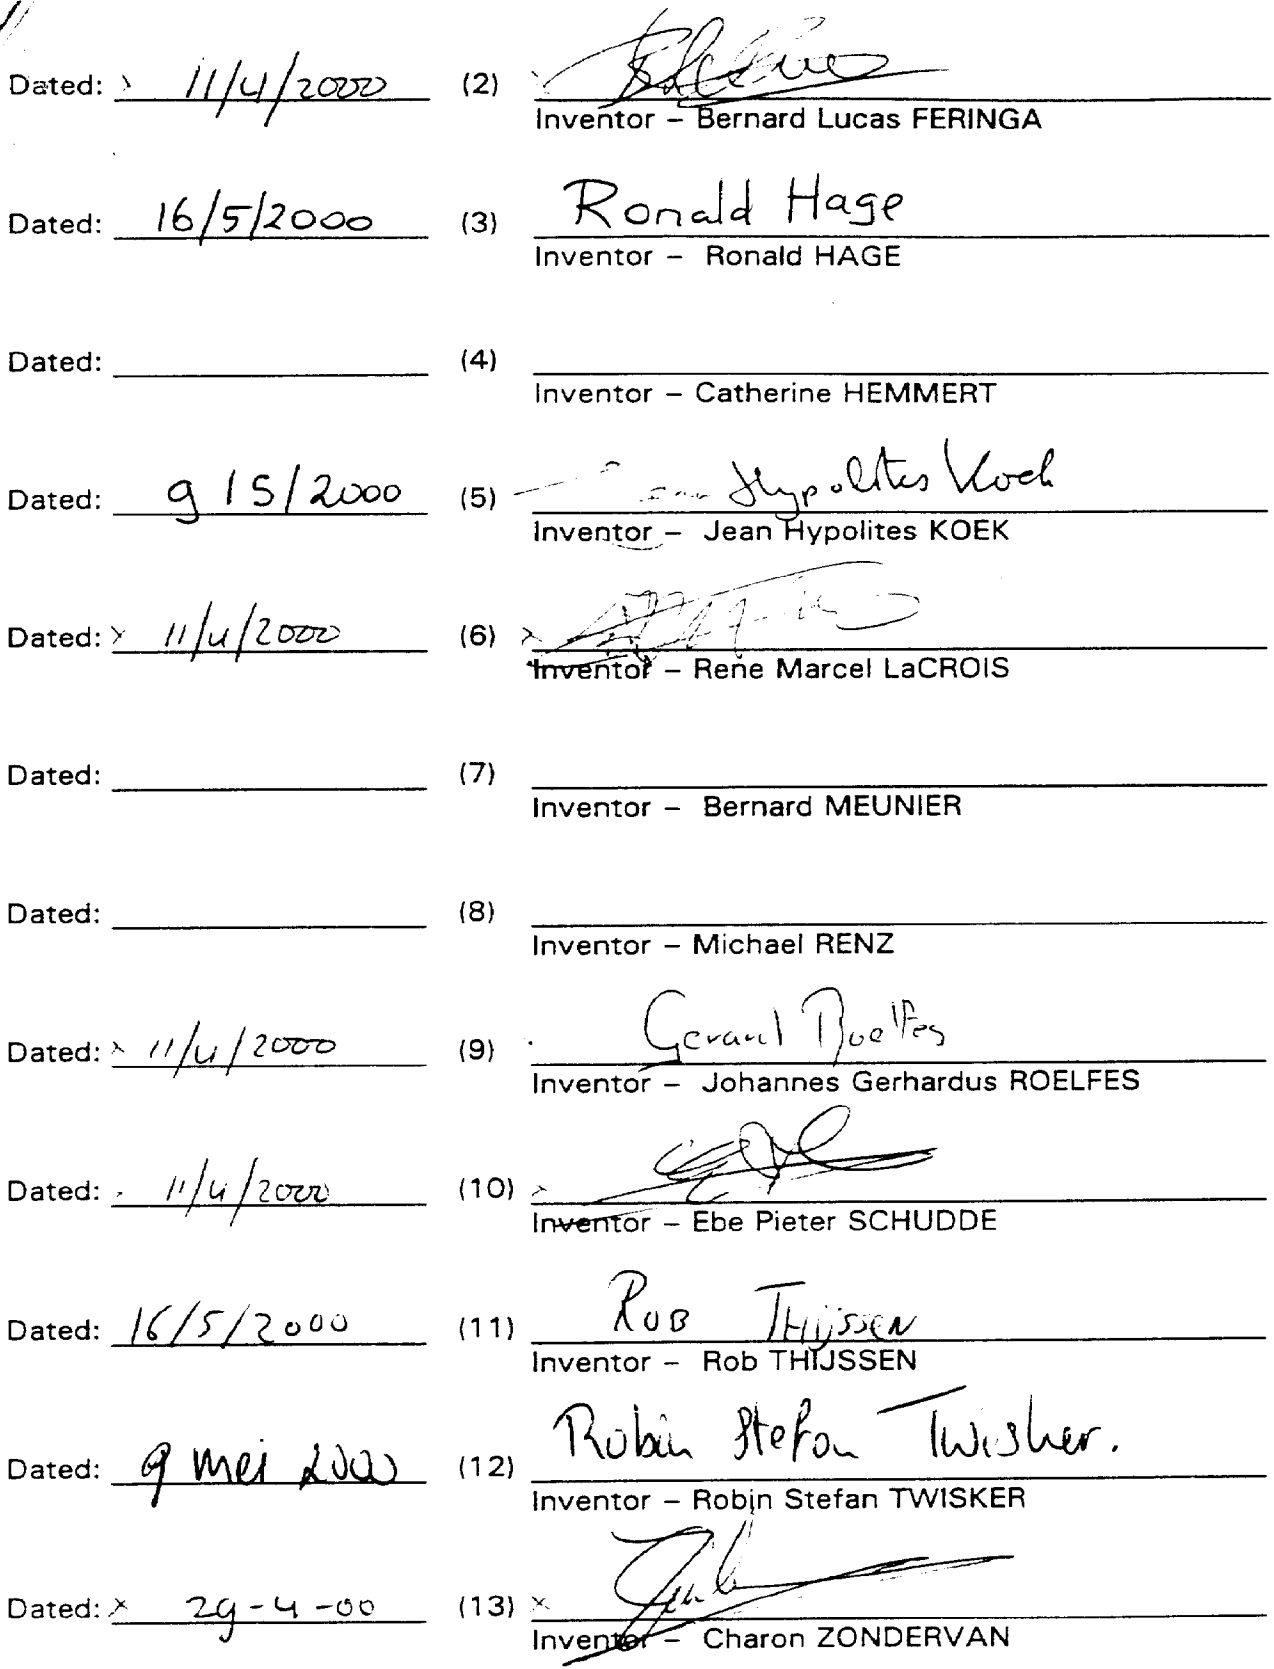 Dated: 11/4/2000 (2)
Inventor – Bernard Lucas FERINGA
Dated: 16/5/2000 (3) Ronald Hage
Inventor – Ronald HAGE
Dated: (4)
Inventor – Catherine HEMMERT
Dated: 9/5/2000 (5) Jean Hypolites Koek
Inventor – Jean Hypolites KOEK
Dated: x 11/4/2000 (6) x
Inventor – Rene Marcel LaCROIS
Dated: (7)
Inventor – Bernard MEUNIER
Dated: (8)
Inventor – Michael RENZ
Dated: x 11/4/2000 (9) Gerard Roelfes
Inventor – Johannes Gerhardus ROELFES
Dated: 11/4/2000 (10) x
Inventor – Ebe Pieter SCHUDDE
Dated: 16/5/2000 (11) Rob Thijssen
Inventor – Rob THIJSSEN
Dated: 9 mei 2000 (12) Robin Stefan Twisker.
Inventor – Robin Stefan TWISKER
Dated: x 29-4-00 (13) x
Inventor – Charon ZONDERVAN